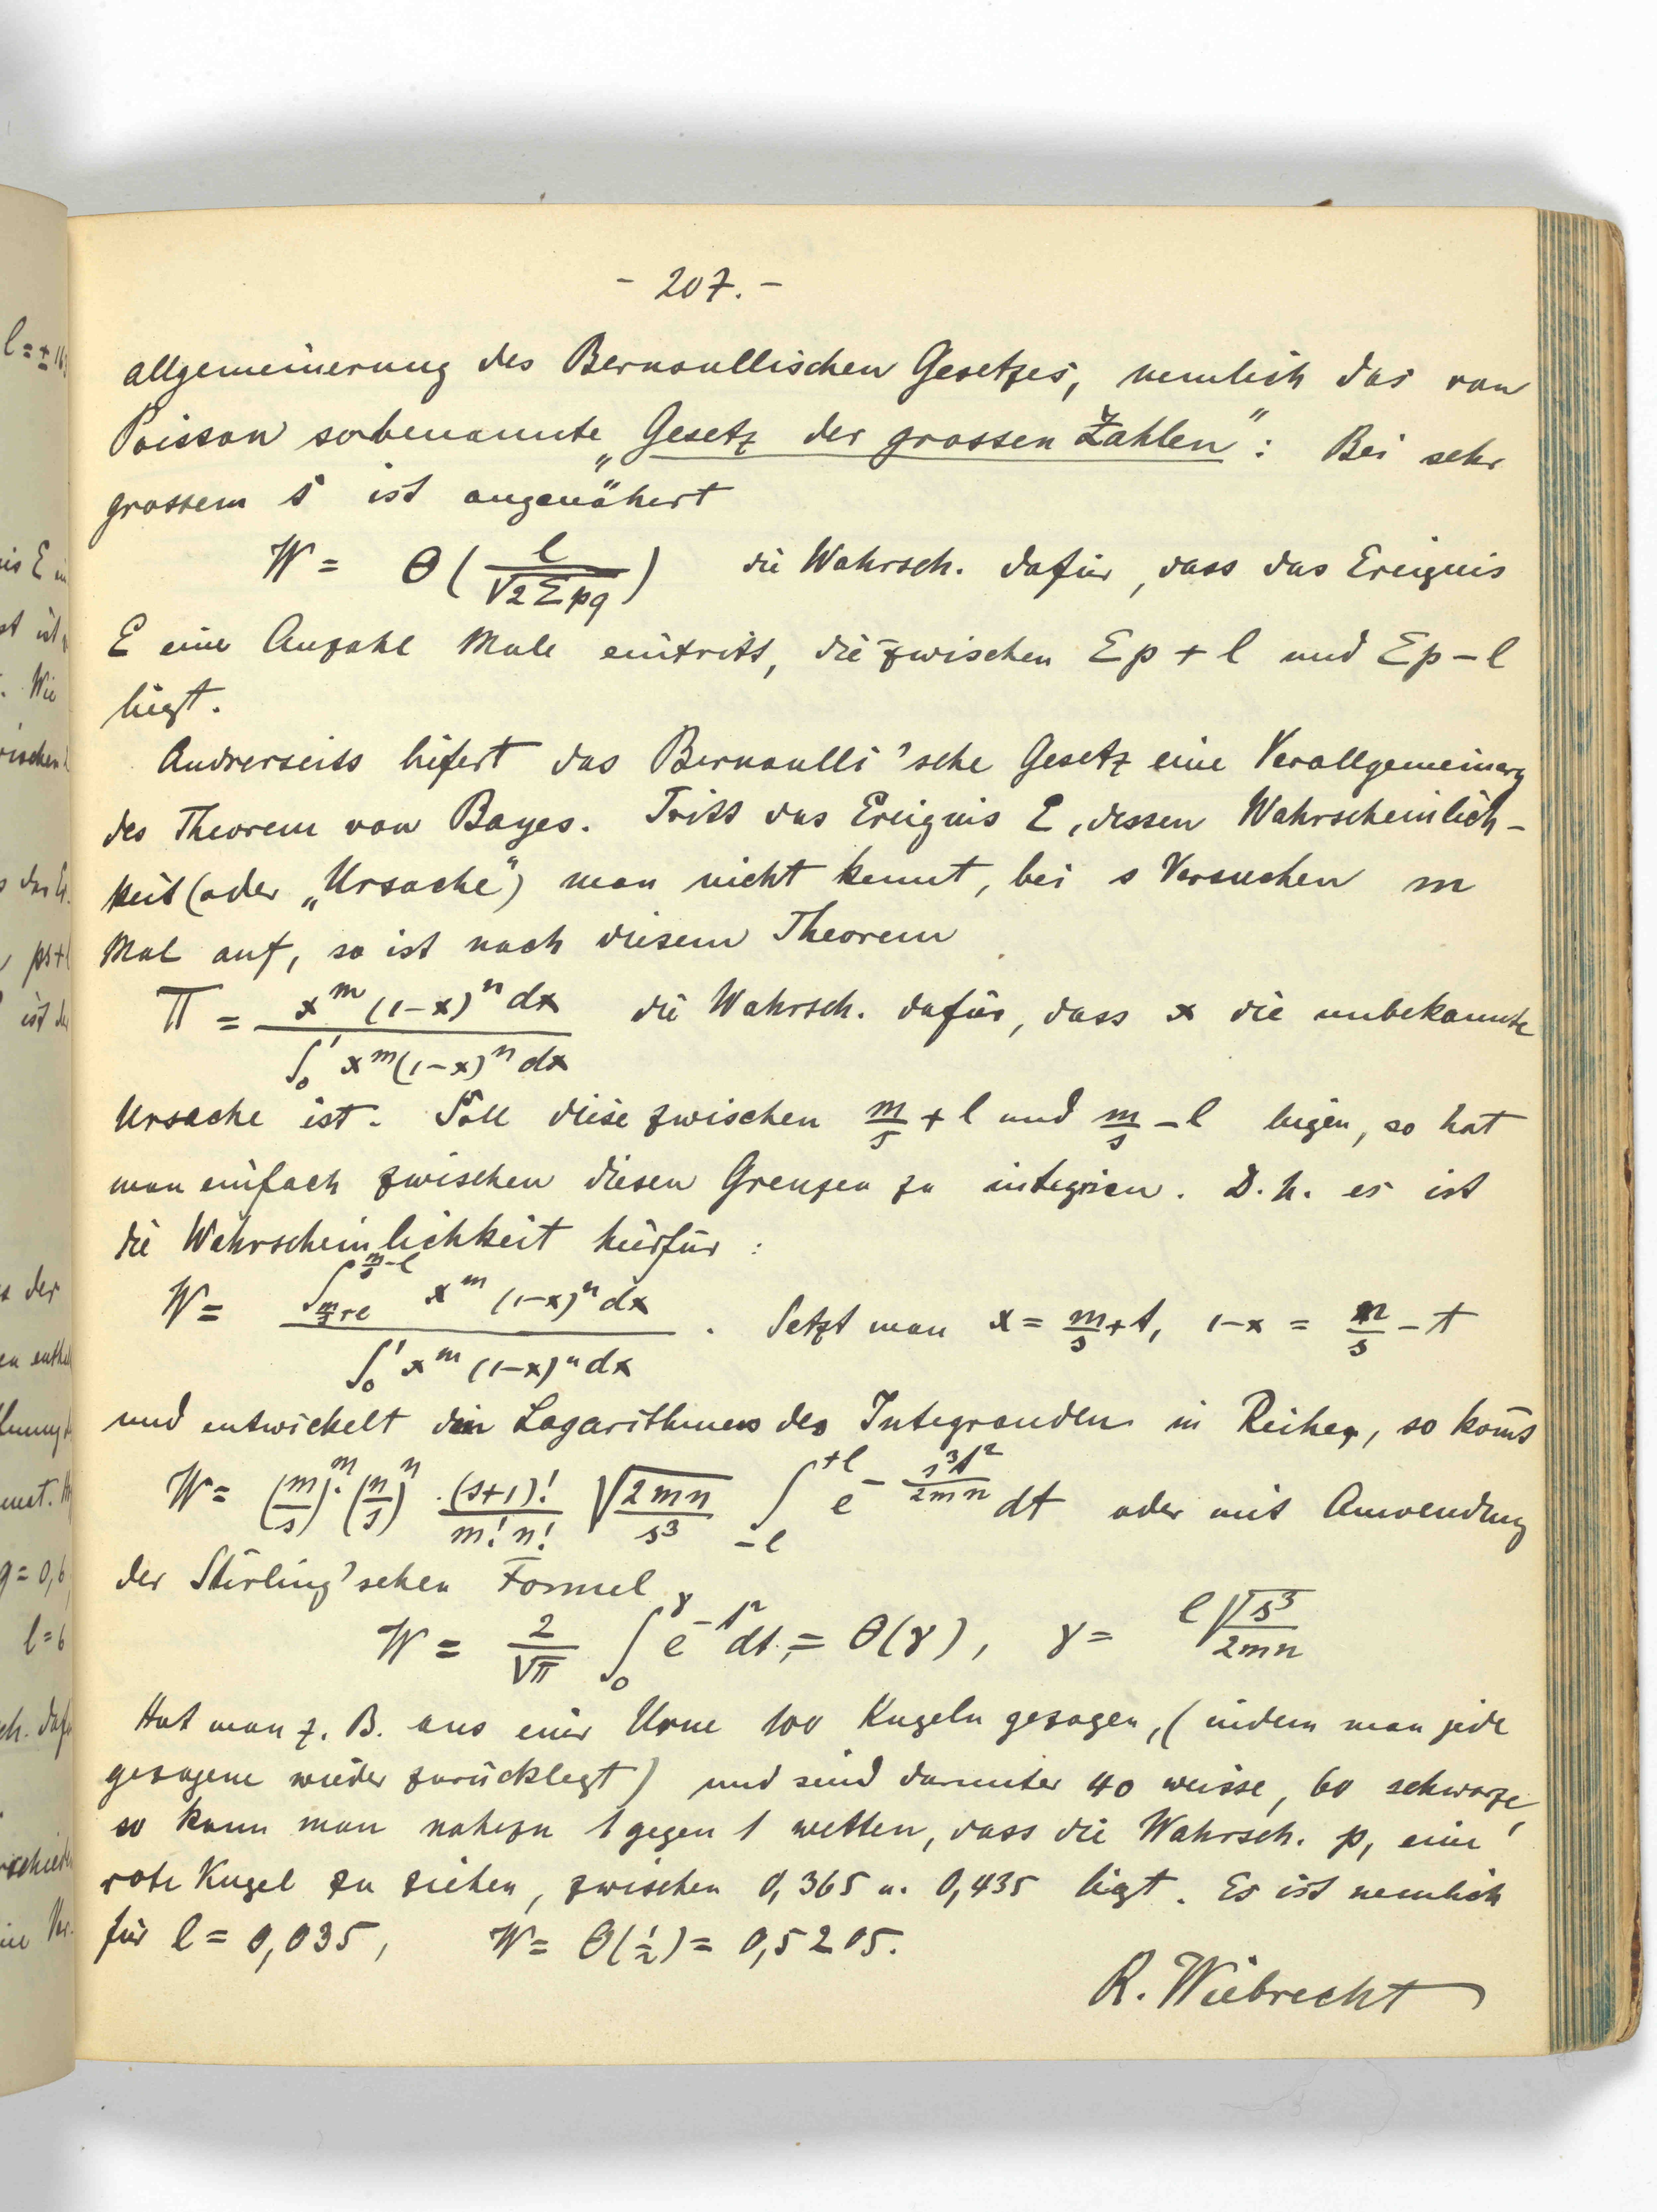 - 207. -
allgemeinerung des Bernoullischen Gesetzes, nemlich das von
Poisson sobenannte „Gesetz der grossen Zahlen“: Bei sehr
grossem s ist angenähert
W = Θ(l/√2Σpq) die Wahrsch. dafür, dass das Ereignis
E eine Anzahl Male eintritt, die zwischen Σp + l und Σp - l
liegt.
Andrerseits liefert das Bernoulli'sche Gesetz eine Verallgemeinerg
des Theorem von Bayes. Tritt das Ereignis E, dessen Wahrscheinlich-
keit (oder „Ursache“) man nicht kennt, bei s Versuchen m
Mal auf, so ist nach diesem Theorem
Π = x^m (1-x)^n dx / ∫₀¹ x^m (1-x)^n dx die Wahrsch. dafür, dass x die unbekannte
Ursache ist. Soll diese zwischen m/s + l und m/s - l liegen, so hat
man einfach zwischen diesen Grenzen zu integrieren. D. h. es ist
die Wahrscheinlichkeit hierfür:
W = ∫_{m/s+l}^{m/s-l} x^m (1-x)^n dx / ∫₀¹ x^m (1-x)^n dx . Setzt man x = m/s + t, 1-x = n/s - t
und entwickelt den Logarithmus des Integranden in Reihen, so kom̅t
W = (m/s)^m · (n/s)^n · (s+1)!/m! n! √2mn/s³ ∫_{-l}^{+l} e^{-s³t²/2mn} dt oder mit Anwendung
der Stirling'schen Formel
W = 2/√π ∫₀^γ e^{-t²} dt = Θ(γ), γ = l√s³/2mn
Hat man z. B. aus einer Urne 100 Kugeln gezogen, (indem man jede
gezogene wieder zurücklegt) und sind darunter 40 weisse, 60 schwarze,
so kann man nahezu 1 gegen 1 wetten, dass die Wahrsch. p, eine
rote Kugel zu ziehen, zwischen 0,365 u. 0,435 liegt. Es ist nemlich
für l = 0,035, W = Θ(½) = 0,5205.
R. Wiebrecht